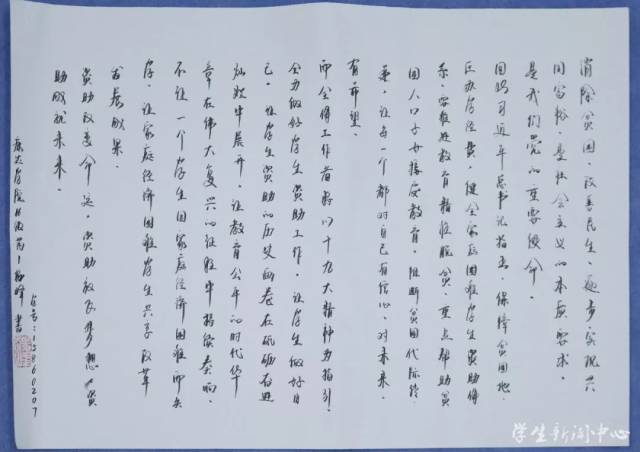 消除贫困、改善民生、逐步实现共
同富裕,是社会主义的本质要求,
是我们党的重要使命。
习近平总书记指出,保障贫困地
区办学经费,健全家庭困难学生资助体
系。要推进教育精准脱贫,重点帮助贫
困人口子女接受教育,阻断贫困代际传
递,让每一个都对自己有信心、对未来
有希望。
而全体工作者将以十九大精神为指引,
全力做好学生资助工作,让学生做好自
己,让学生资助的历史画卷在砥砺奋进
中展开,让教育公平的时代华
章在伟大复兴的征程中奏响,
不让一个学生因家庭经济困难而失
学,让家庭经济困难学生共享改革
发展成果。
资助改变命运,资助放飞梦想,资
助成就未来。
书
学号:15960207
学生新闻中心